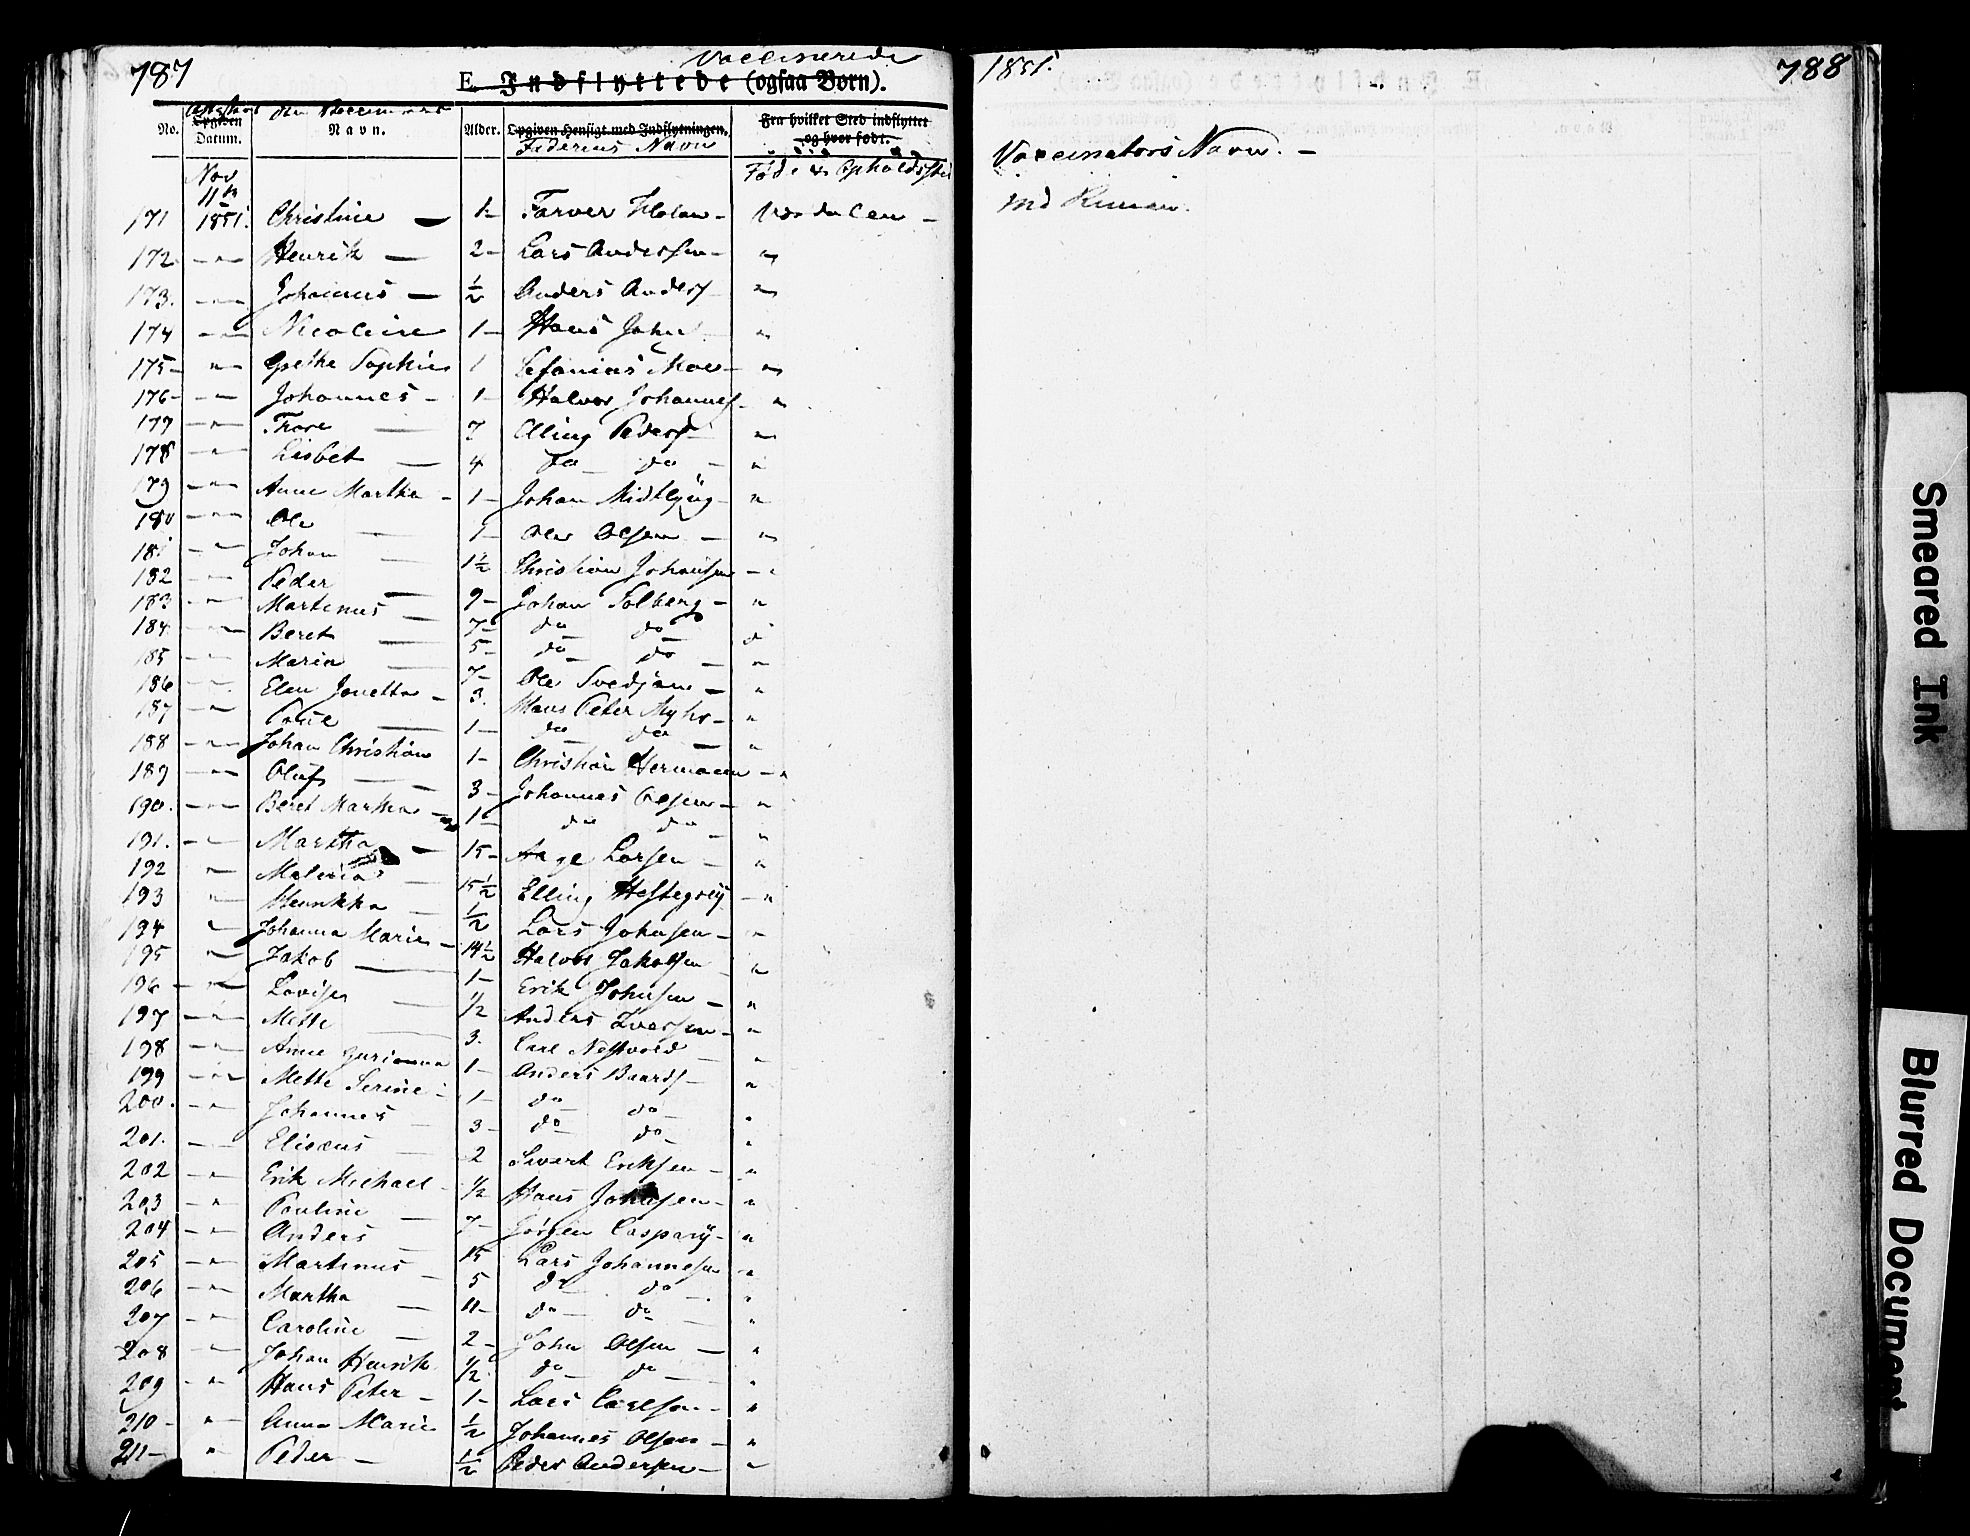 787
Vaccinerede
E. Indflyttede (ogsaa Børn).
Attestens den Vaccineredes
No. Opgiven Datum. Navn. Alder. Opgiven Hensigt med Indflytningen. Fra hvilket Sted indflyttet og hvor født.
Faderens Navn
Føde og Opholdssted
Nov
11te
171 1851. Christine — 1- Farver Holan - Værdalen -
172 - " - Henrik — 2- Lars Anderssen - "
173. - " - Johannes — ½ Anders Anders "
174 - " - Nicoline 1- Hans John "
175- " Grethe Sophie 1 Zefanias Moe - "
176- - " - Johannes - 1- Halvor Johannes - "
177 - " - Thore — 7 Elling Peders "
178 " Lisbet — 4 do do - "
179 - " - Anne Martha - 1- Johan Midtlyng - "
180 - " - Ole — 1- Ole Olsen - "
181 - " - Johan — 1½ Christian Johansen - "
182 - " - Peder — 9- Johan Solberg - "
183 - " - Martinus — 7- do do "
184 - " - Beret — 5- do do - "
185 - " - Maria — 7- Ole Svedjan - "
186 - " - Elen Jonetta - 3. Hans Peter Myhr - "
187 - " Paul — 1- do do - "
188 - " - Johan Christian 1- Christian Hermann - "
189 - " - Oluf — 3- Johannes Olsen - "
190. - " - Beret Martha - 1- do do - "
191. - " Martha — 15- Aage Larsen - "
192 " Maleria — 15½ Elling Hestegrei - "
193 " Henrikka — ½ Lars Johnsen - "
194 " Johanna Marie - 14½ Halvor Jakobsen "
195 " Jakob — 1- Erik Johnsen - "
196 - " - Lovise — 1/2 Anders Iversen - "
197 - " - Mette — 3. Carl Nessvold - "
198 - " - Anne Jurianna 1- Anders Baards - "
199 - " - Mette Serine - 1- do do - "
200. - " Johannes - 3- do do - "
201. - - Eliæus - 2 Sivert Eriksen - "
202 - " - Erik Michael - 1/2 Hans Johnsen - "
203 - " - Pauline — 7- Jørgen Caspary - "
204 - " - Anders — 15 Lars Johannesen - "
205 - " - Martinus - 5 do do - "
206 - " - Martha — 11- do do - "
207 - " - Caroline — 2- John Olsen - "
208 " Johan Henrik 1/2 do do - "
209 - " - Hans Peter - 1- Lars Carlsen - "
210 - " Anna Marie ½ Johannes Olsen - "
211- " Peder - ½ Peder Andersen - "
1851. 788
Vaccinators Navn. -
Smeared Ink
Blurred Document